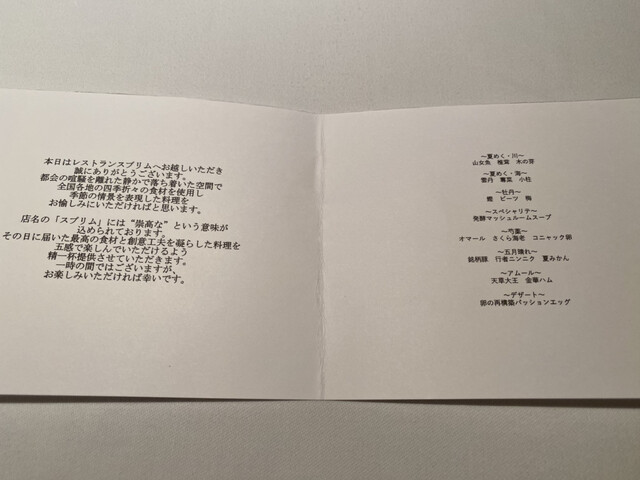 本日はレストランスブリムへお越しいただき
誠にありがとうございます。
都会の喧騒を離れた静かで落ち着いた空間で
全国各地の四季折々の食材を使用し
季節の情景を表現した料理を
お愉しみにいただければと思います。
店名の「スブリム」には“崇高な”という意味が
込められております。
その日に届いた最高の食材と創意工夫を凝らした料理を
五感で楽しんでいただけるよう
精一杯提供させていただきます。
一時の間ではございますが、
お楽しみいただければ幸いです。
～夏めく・川～
山女魚 椎葉 木の芽
～夏めく・海～
雲丹 蓴菜 小柱
～牡丹～
鹿 ビーツ 梅
～スペシャリテ～
発酵マッシュルームスープ
～芍薬～
オマール さくら海老 コニャック卵
～五月晴れ～
銘柄豚 行者ニンニク 夏みかん
～アムール～
天草大王 金華ハム
～デザート～
卵の再構築パッションエッグ